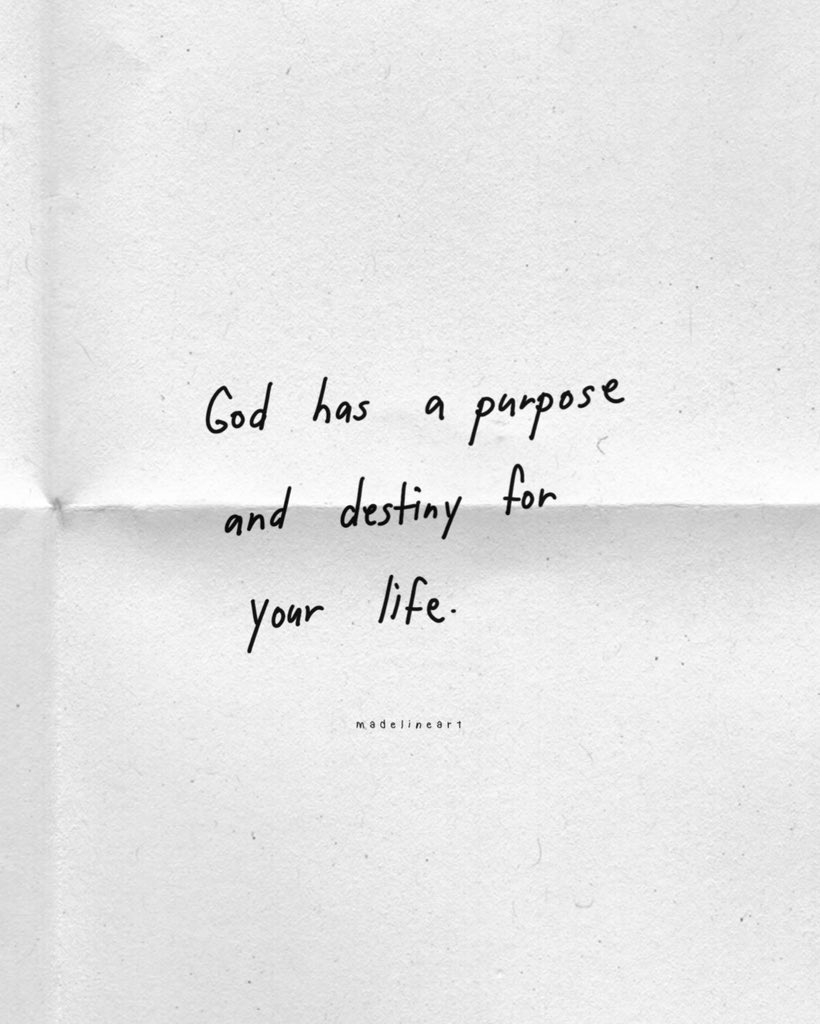 God has a purpose
and destiny for
your life.
madelineart